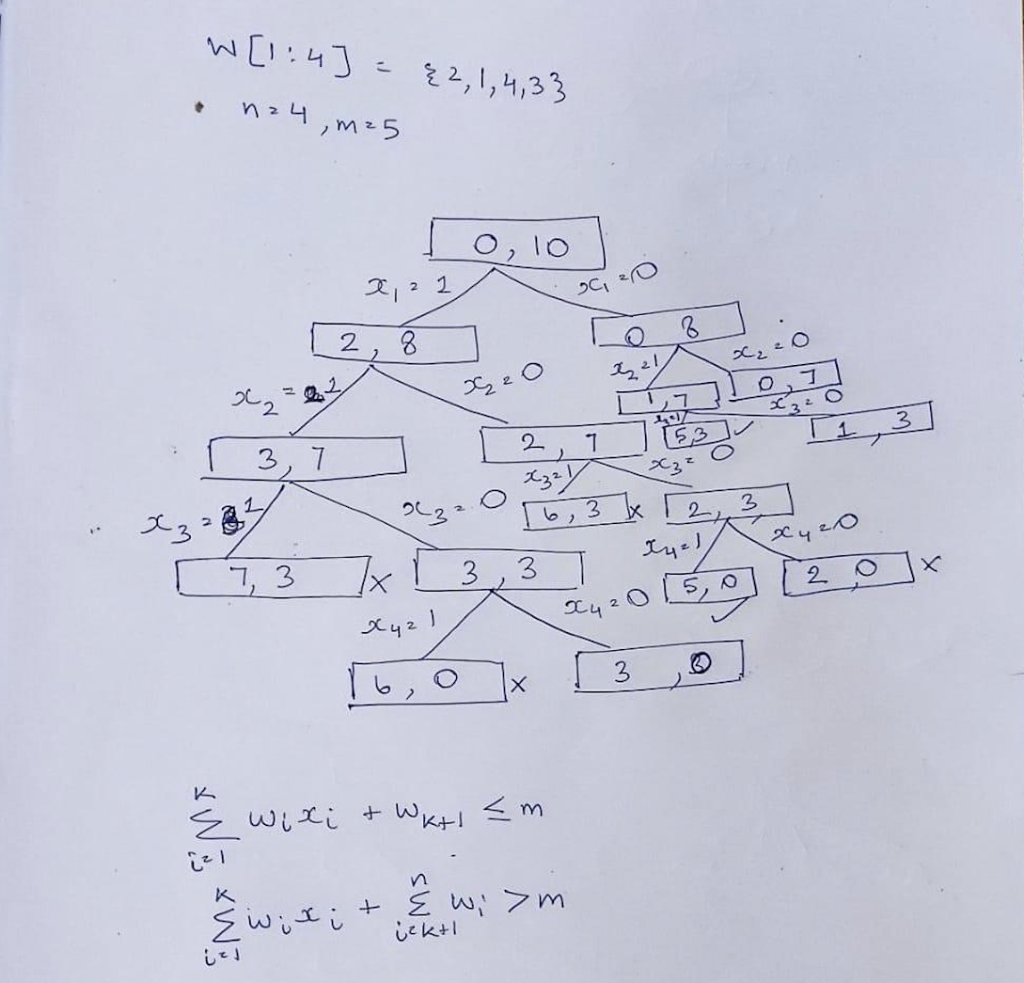 W[1:4] = {2,1,4,3}
n=4, m=5
0, 10
x₁=1 x₁=0
2, 8 0 8
x₂=1 x₂=0 x₂=1 x₂=0
1,7 0,7
x₃=1 x₃=0
3, 7 2, 7 5,3 ✓ 1, 3
x₃=1 x₃=0 x₃=1 x₃=0
6, 3 x 2, 3
x₄=1 x₄=0
7, 3 x 3, 3 5, 0 ✓ 2 0 x
x₄=1 x₄=0
6, 0 x 3, 0
∑ᵢ₌₁ᴷ wᵢxᵢ + wₖ₊₁ ≤ m
∑ᵢ₌₁ᴷ wᵢxᵢ + ∑ᵢ₌ₖ₊₁ⁿ wᵢ > m